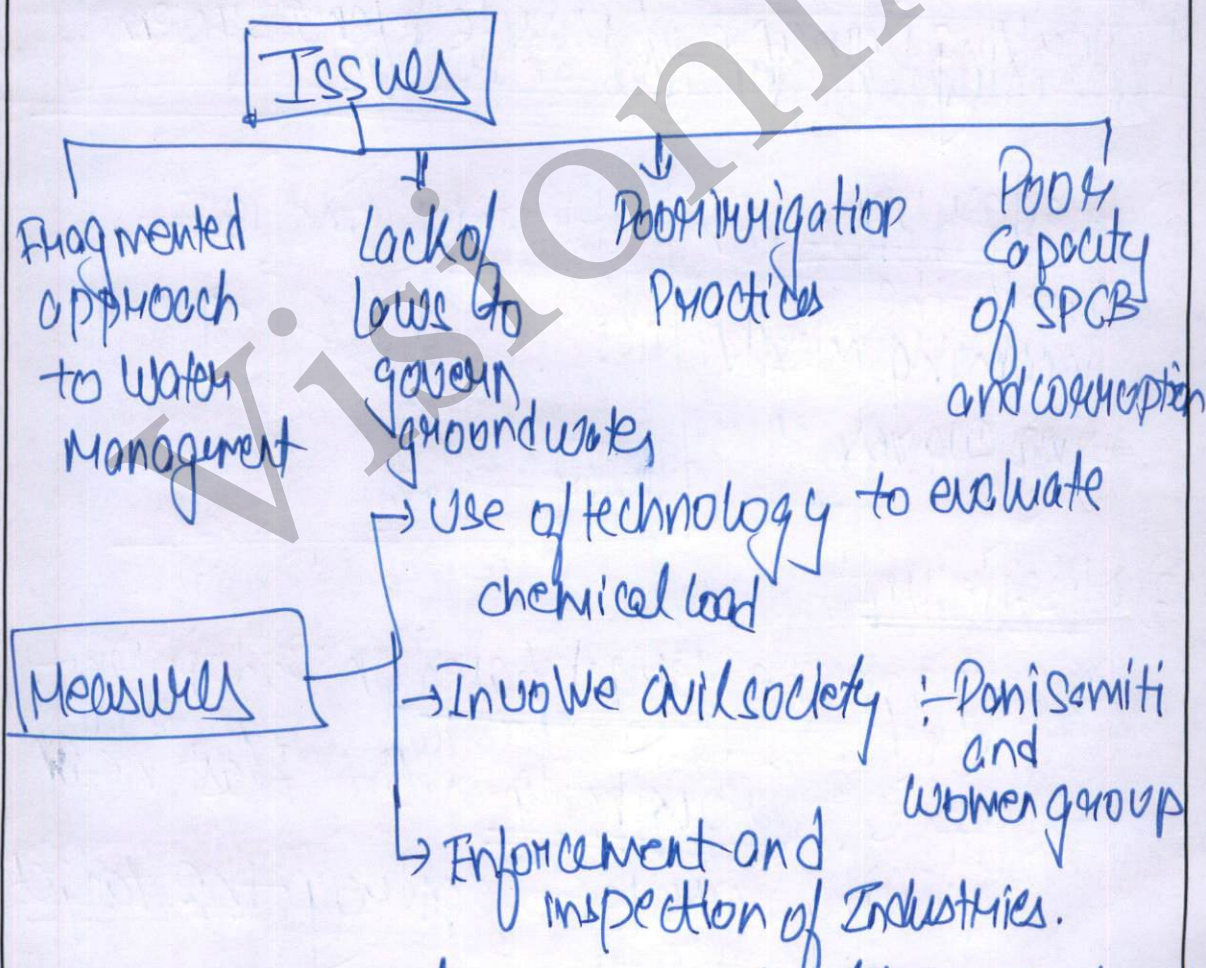 Issues
Fragmented
approach
to water
Management
Lack of
laws to
govern
groundwater
Poor irrigation
Practices
Poor
capacity
of SPCB
and corruption
→ Use of technology to evaluate
chemical load
Measures
→ Involve civil society :- Pani Samiti
and
women group
→ Enforcement and
inspection of Industries.
Vision